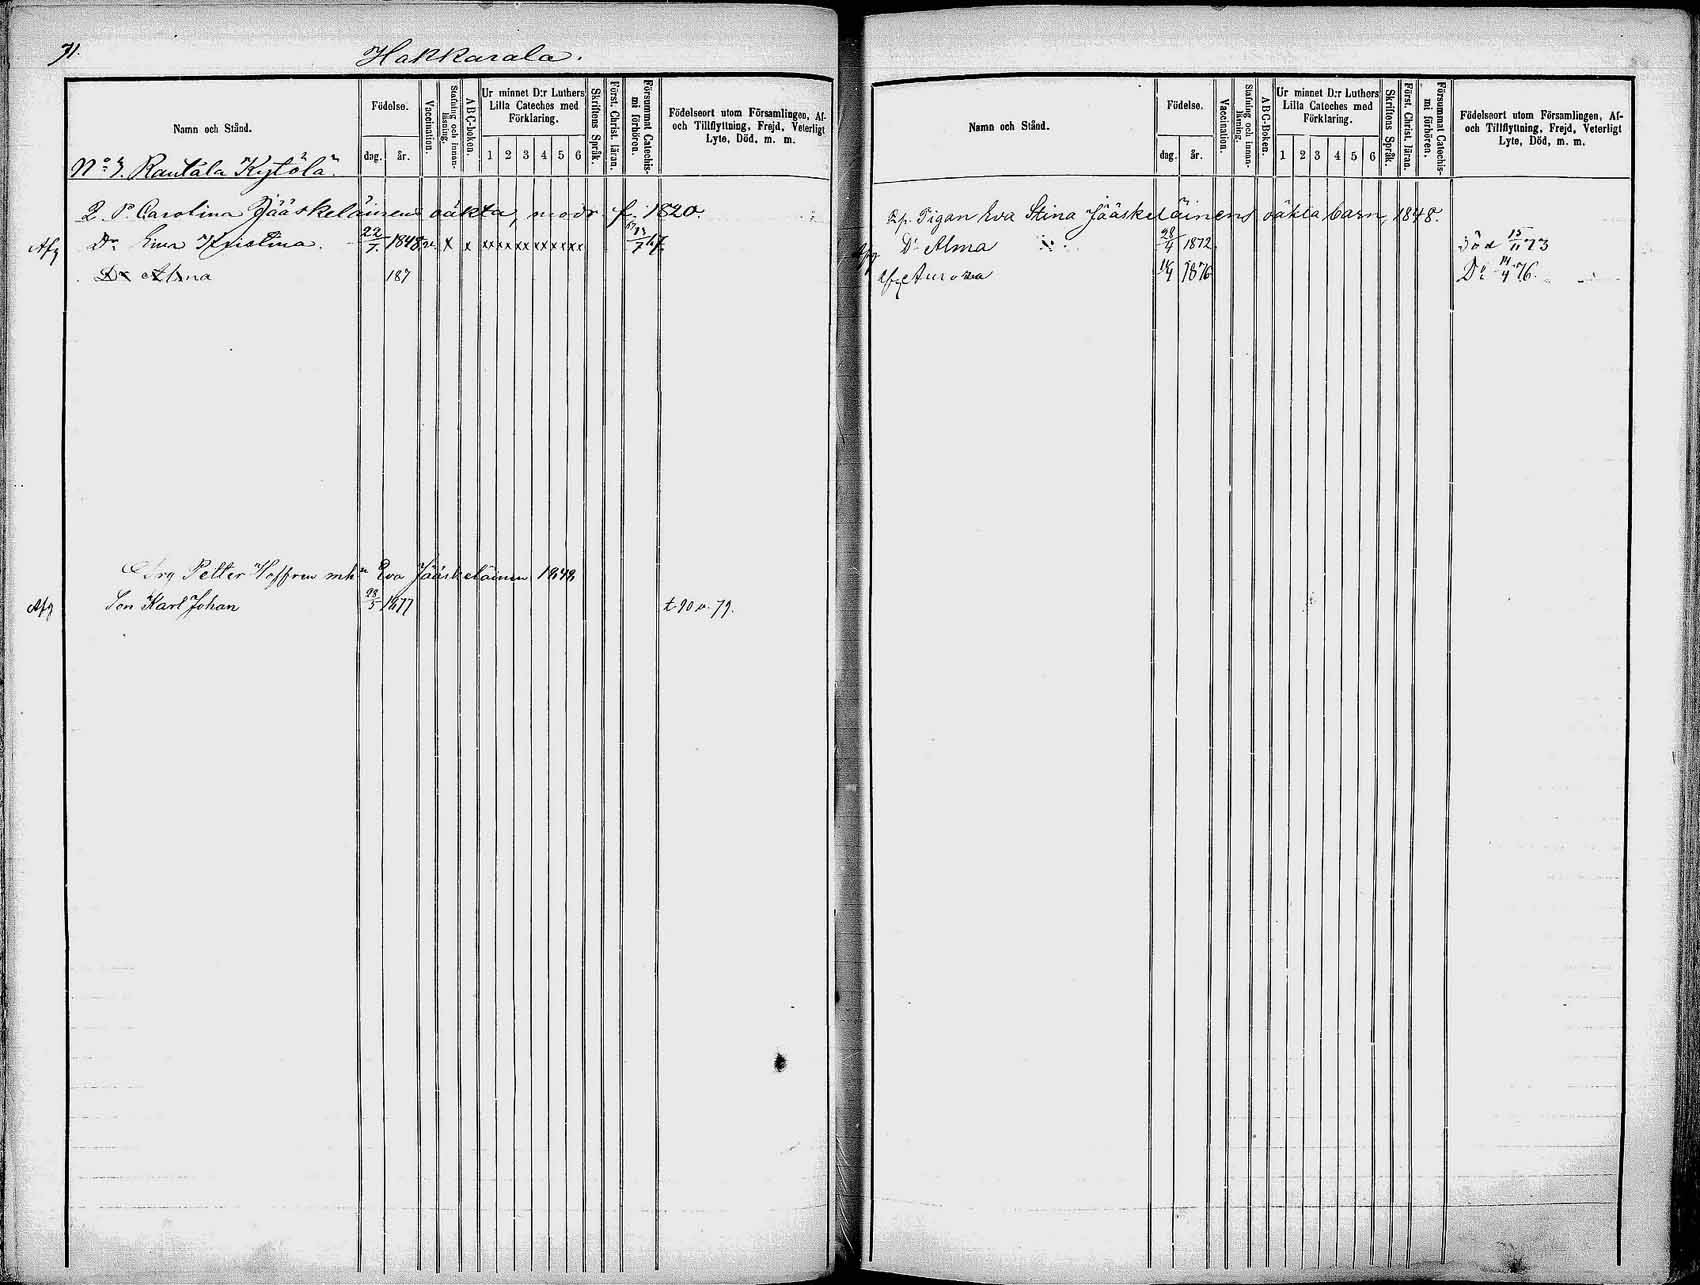 71.
Hakkarala.
Namn och Stånd.
Födelse.
dag. år.
Vaccination.
Stafning och innanläsning.
A B C-Boken.
Ur minnet D:r Luthers Lilla Cateches med Förklaring.
1 2 3 4 5 6
Skriftens Språk.
Först. Christ. läran.
Försummat Catechismi förhören.
Födelseort utom Församlingen, Af- och Tillflyttning, Frejd, Veterligt Lyte, Död, m. m.
No 3. Rautala Kytölä.
Carolina Jääskeläinens oäkta, modr f. 1820.
Afg Dr Eva Kristina. 22/7 1848 x x xx xx xx xx xx xx
Dr Alma 187
Petter Hoffren Eva Jääskeläinen 1848
Afg Son Karl Johan 28/5 1877 t. 90 v. 79.
Namn och Stånd.
Födelse.
dag. år.
Vaccination.
Stafning och innanläsning.
A B C-Boken.
Ur minnet D:r Luthers Lilla Cateches med Förklaring.
1 2 3 4 5 6
Skriftens Språk.
Först. Christ. läran.
Försummat Catechismi förhören.
Födelseort utom Församlingen, Af- och Tillflyttning, Frejd, Veterligt Lyte, Död, m. m.
Pigan Eva Stina Jääskeläinens oäkta barn, 1848.
Dr Alma 28/4 1872 Död 15/11 73
Afg Aurora 14/4 1876 Dr 14/4 76.